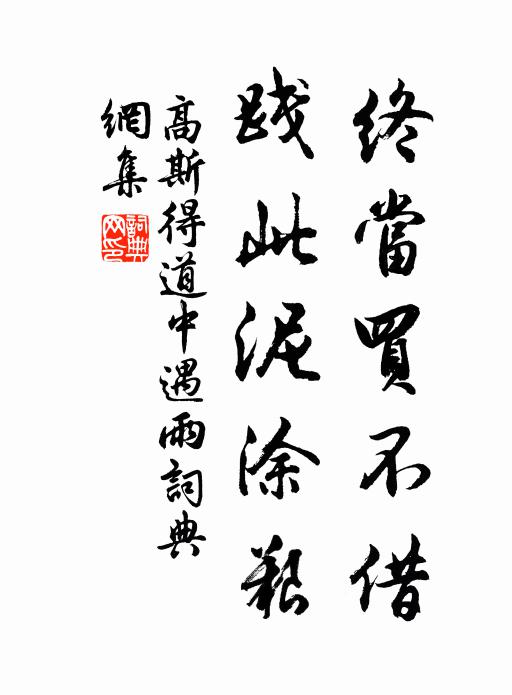 終當買不借
踐此泥涂艱
高斯得道中遇雨詞典
網集
詞典
网印